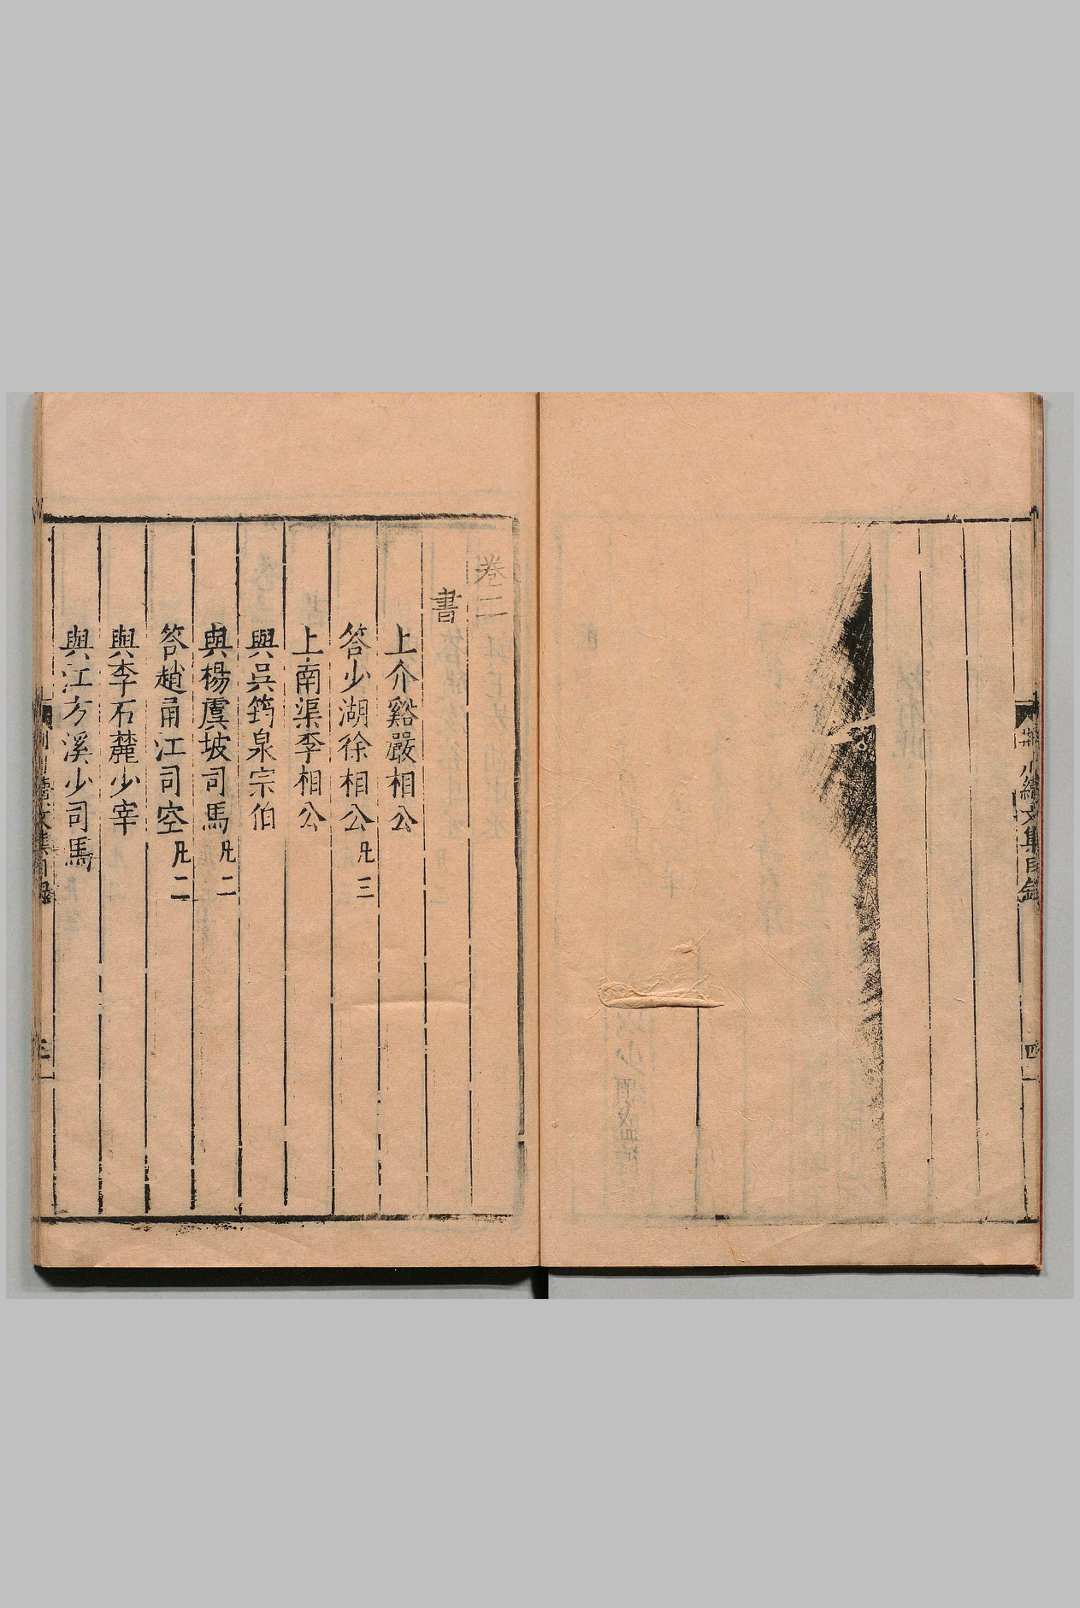 荊川續文集目錄
四
卷二
書
上介谿嚴相公
答少湖徐相公凡三
上南渠李相公
與吳筠泉宗伯
與楊虞坡司馬凡二
答趙甬江司空凡二
與李石麓少宰
與江方溪少司馬